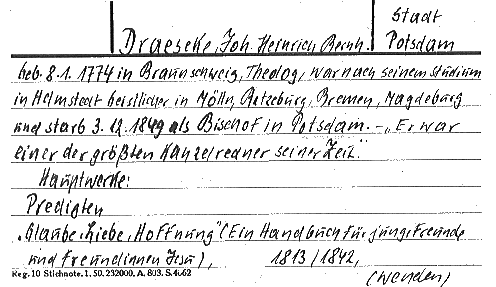 Stadt
Draeseke, Joh. Heinrich Bernh. Potsdam
geb. 8.1.1774 in Braunschweig, Theolog, war nach seinem Studium
in Helmstedt Geistlicher in Mölln, Ratzeburg, Bremen, Magdeburg
und starb 3.12.1849 als Bischof in Potsdam. - „Er war
einer der größten Kanzelredner seiner Zeit."
Hauptwerke:
Predigten
„Glaube, Liebe, Hoffnung" (Ein Handbuch für junge Freunde
und Freundinnen Jesu), 1813/1842,
Reg. 10 Stichnote. 1. 50. 232000. A. 803. S. 4662
(wenden)